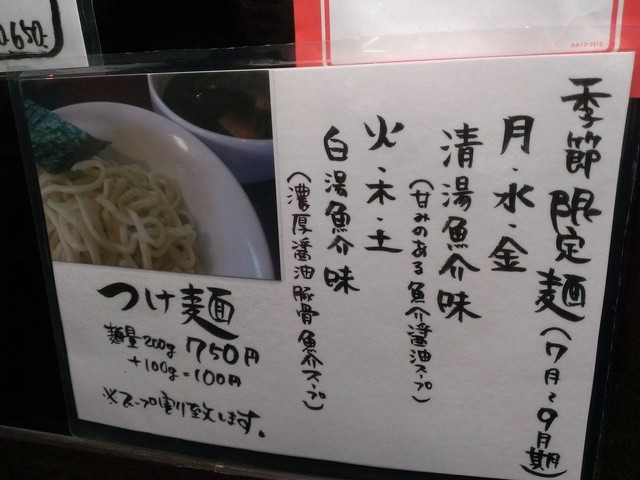 季節限定麺(7月〜9月期)
月・水・金
清湯魚介味
(甘みのある魚介醤油スープ)
火・木・土
白湯魚介味
(濃厚醤油豚骨魚介スープ)
つけ麺
麺量200g 750円
+100g=100円
※スープ割り致します。
650-